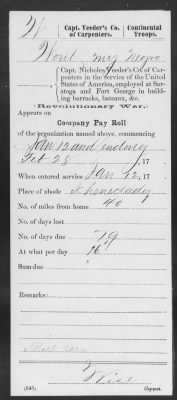 Capt. Veeder's Co. of Carpenters.
Continental Troops.
my Negro
Capt. Nicholas Veeder's Co. of Carpenters in the service of the United States of America, employed at Saratoga and Fort George in building barracks, bateaux, &c.
Revolutionary War.
Appears on
Company Pay Roll
of the organization named above, commencing
Jan 12 and ending
Feb 28, 17
When entered service Jan 12, 17
Place of abode Schenectady
No. of miles from home 40
No. of days lost
No. of days due 79
At what per day
Sum due
Remarks:
(545)
Copyist.